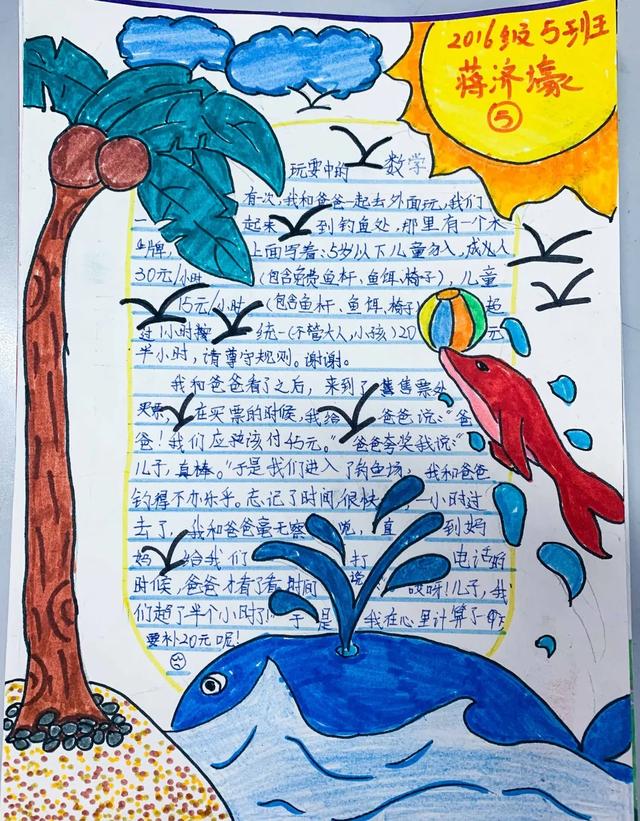 2016级5班
蒋济壕
5
玩耍中的数学
有一次,我和爸爸一起去外面玩,我们
一起来到钓鱼处,那里有一个木
牌,上面写着:5岁以下儿童勿入,成人
30元/小时(包含免费鱼杆、鱼饵、椅子),儿童
15元/小时(包含鱼杆、鱼饵、椅子)起
过1小时按统一(不管大人,小孩)20元
半小时,请尊守规则。谢谢。
我和爸爸看了之后,来到了售票处
买票,在买票的时候,我给爸爸说:“爸
爸!我们应该付45元。”爸爸夸奖我说:“
儿子,真棒。”于是我们进入了钓鱼场,我和爸爸
钓得不亦乐乎。忘记了时间,很快一小时过
去了,我和爸爸毫无察觉,直到妈
妈给我们打电话的
时候,爸爸才看了看时间说哎呀!儿子,我
们超了半个小时了于是我在心里计算了一下
要补20元呢!